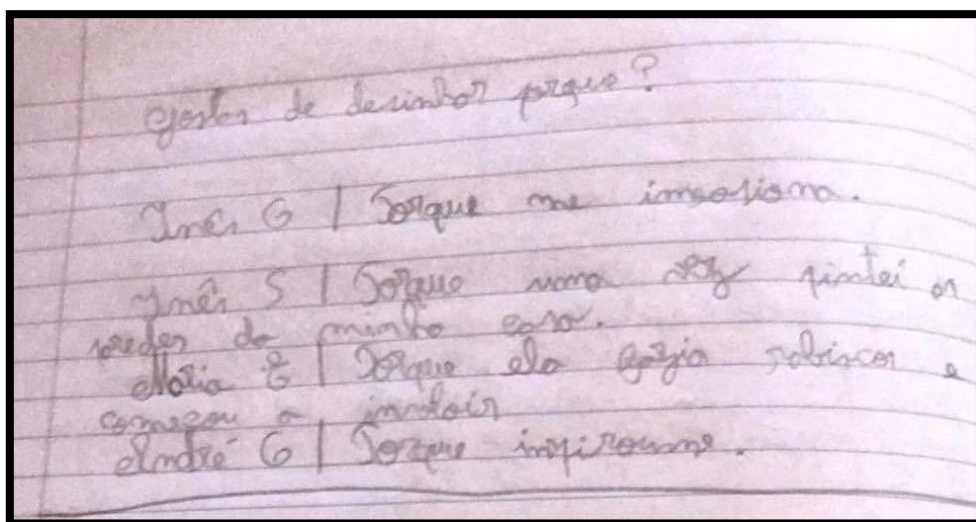 Gostas de desinhar porque?
Inês G | Porque me imsosiona.
Inês S | Porque uma vez pintei as
paredes da minha casa.
Maria E | Porque ela fazia rabiscos e
começou a
André G | Porque inspiroume.